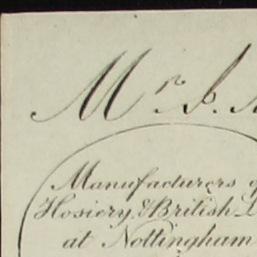 Mr. J.
Manufacturers
Hosiery, & British
at Nottingham